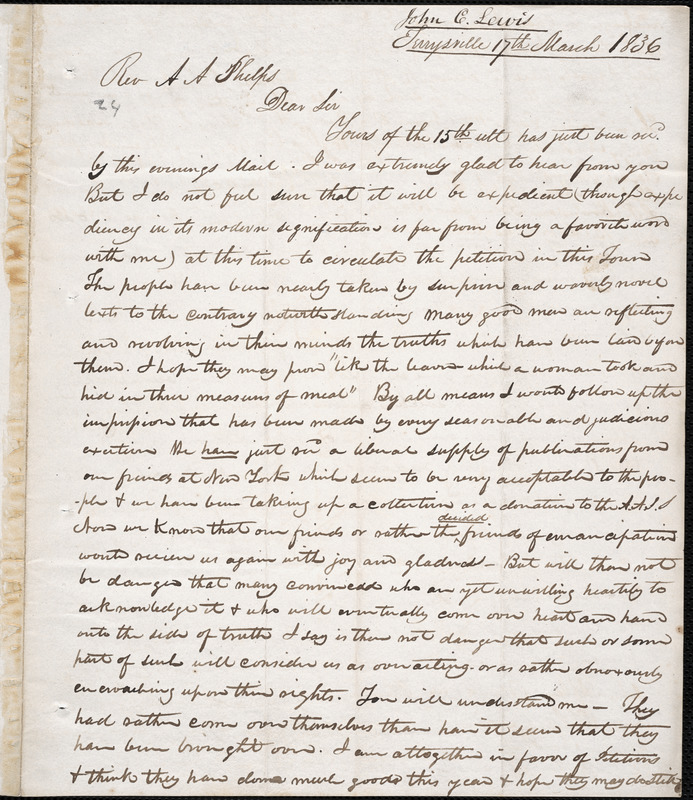 John C. Lewis
Terrysville 17th March 1836
Rev A A Phelps
24
Dear Sir
Yours of the 15th ult has just been recd.
by this evenings Mail. I was extremely glad to hear from you
But I do not feel sure that it will be expedient (though expe
diency in its modern signification is far from being a favorite word
with me) at this time to circulate the petition in this Town
The people have been nearly taken by surprise and
to the contrary notwithstanding many good men are reflecting
and revolving in their minds the truths which have been laid before
them. I hope they may prove "like the leaven which a woman took and
hid in three measures of meal" By all means I would follow up the
impression that has been made by every seasonable and judicious
exertion We have just recd a liberal supply of publications from
our friends at New York which seem to be very acceptable to the peo-
-ple & we have been taking up a collection as a donation to the A.A.S.S
Now we know that our friends or rather the decided friends of emancipation
would receive us again with joy and gladness - But will there not
be danger that many convinced who are yet unwilling heartily to
acknowledge it & who will eventually come over heart and hand
onto the side of truth I say is there not danger that such or some
part of such will consider us as overacting - or as rather obnoxiously
encroaching upon their rights. You will understand me - They
had rather come over themselves than have it seem that they
have been brought over. I am altogether in favor of Petitions
& think they have done much good this year & hope they may do still